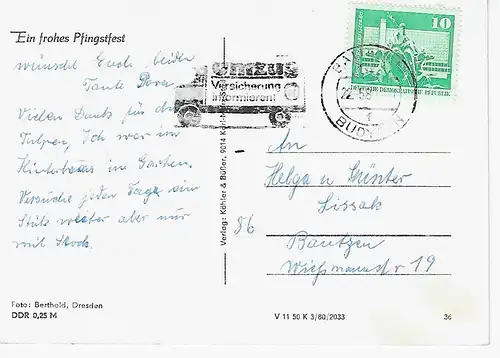 Ein frohes Pfingstfest
wünscht Euch beiden
Tante Dora
Vielen Dank für die
Tulpen, Ich war im
im Garten.
Versuche jeden Tage ein
Stück weiter aber nur
mit Stock.
Foto: Berthold, Dresden
DDR 0,25 M
Verlag: Köhler & Büßer, 9014 Karl-Mar
UMZUG
Versicherung
informieren!
10
DEUTSCHE DEMOKRATISCHE REPUBLIK
BAUTZEN
1
An
Helga u Günter
Lissak
86
Bautzen
Wißmannstr 19
V 11 50 K 3/80/2033
36